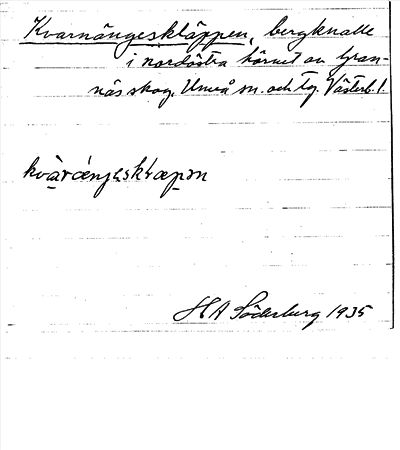 Kvarnängeskläppen, bergknalle
i nordöstra hörnet av Gran-
näs skog. Umeå sn. och tg. Västerb. l.
kvàrćénjəskłæpən
H A Söderberg 1935